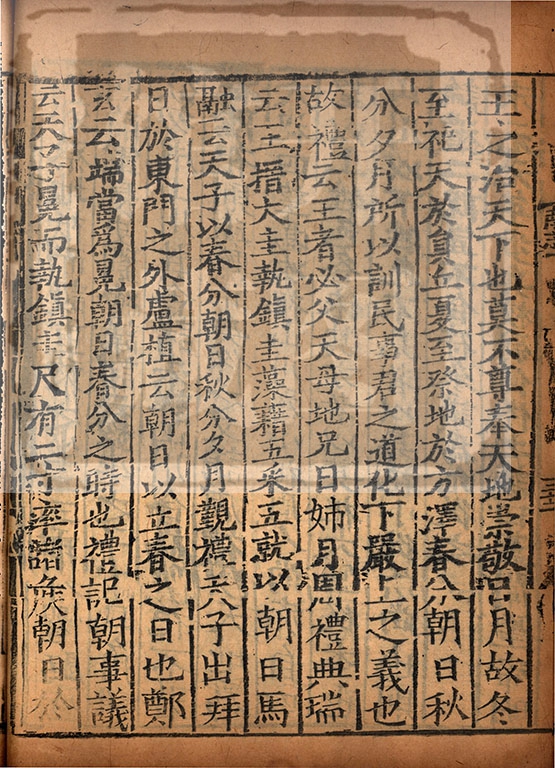 王之治天下也莫不尊奉天地崇敬日月故冬
至祀天於員丘夏至祭地於方澤春分朝日秋
分夕月所以訓民事君之道化下嚴上之義也
故禮云王者必父天母地兄日姊月周禮典瑞
云王搢大圭執鎮圭藻藉五采五就以朝日馬
融云天子以春分朝日秋分夕月覲禮云天子出拜
日於東門之外盧植云朝日以立春之日也鄭
玄云端當爲冕朝日春分之時也禮記朝事議
云天子冕而執鎮圭尺有二寸率諸侯朝日於